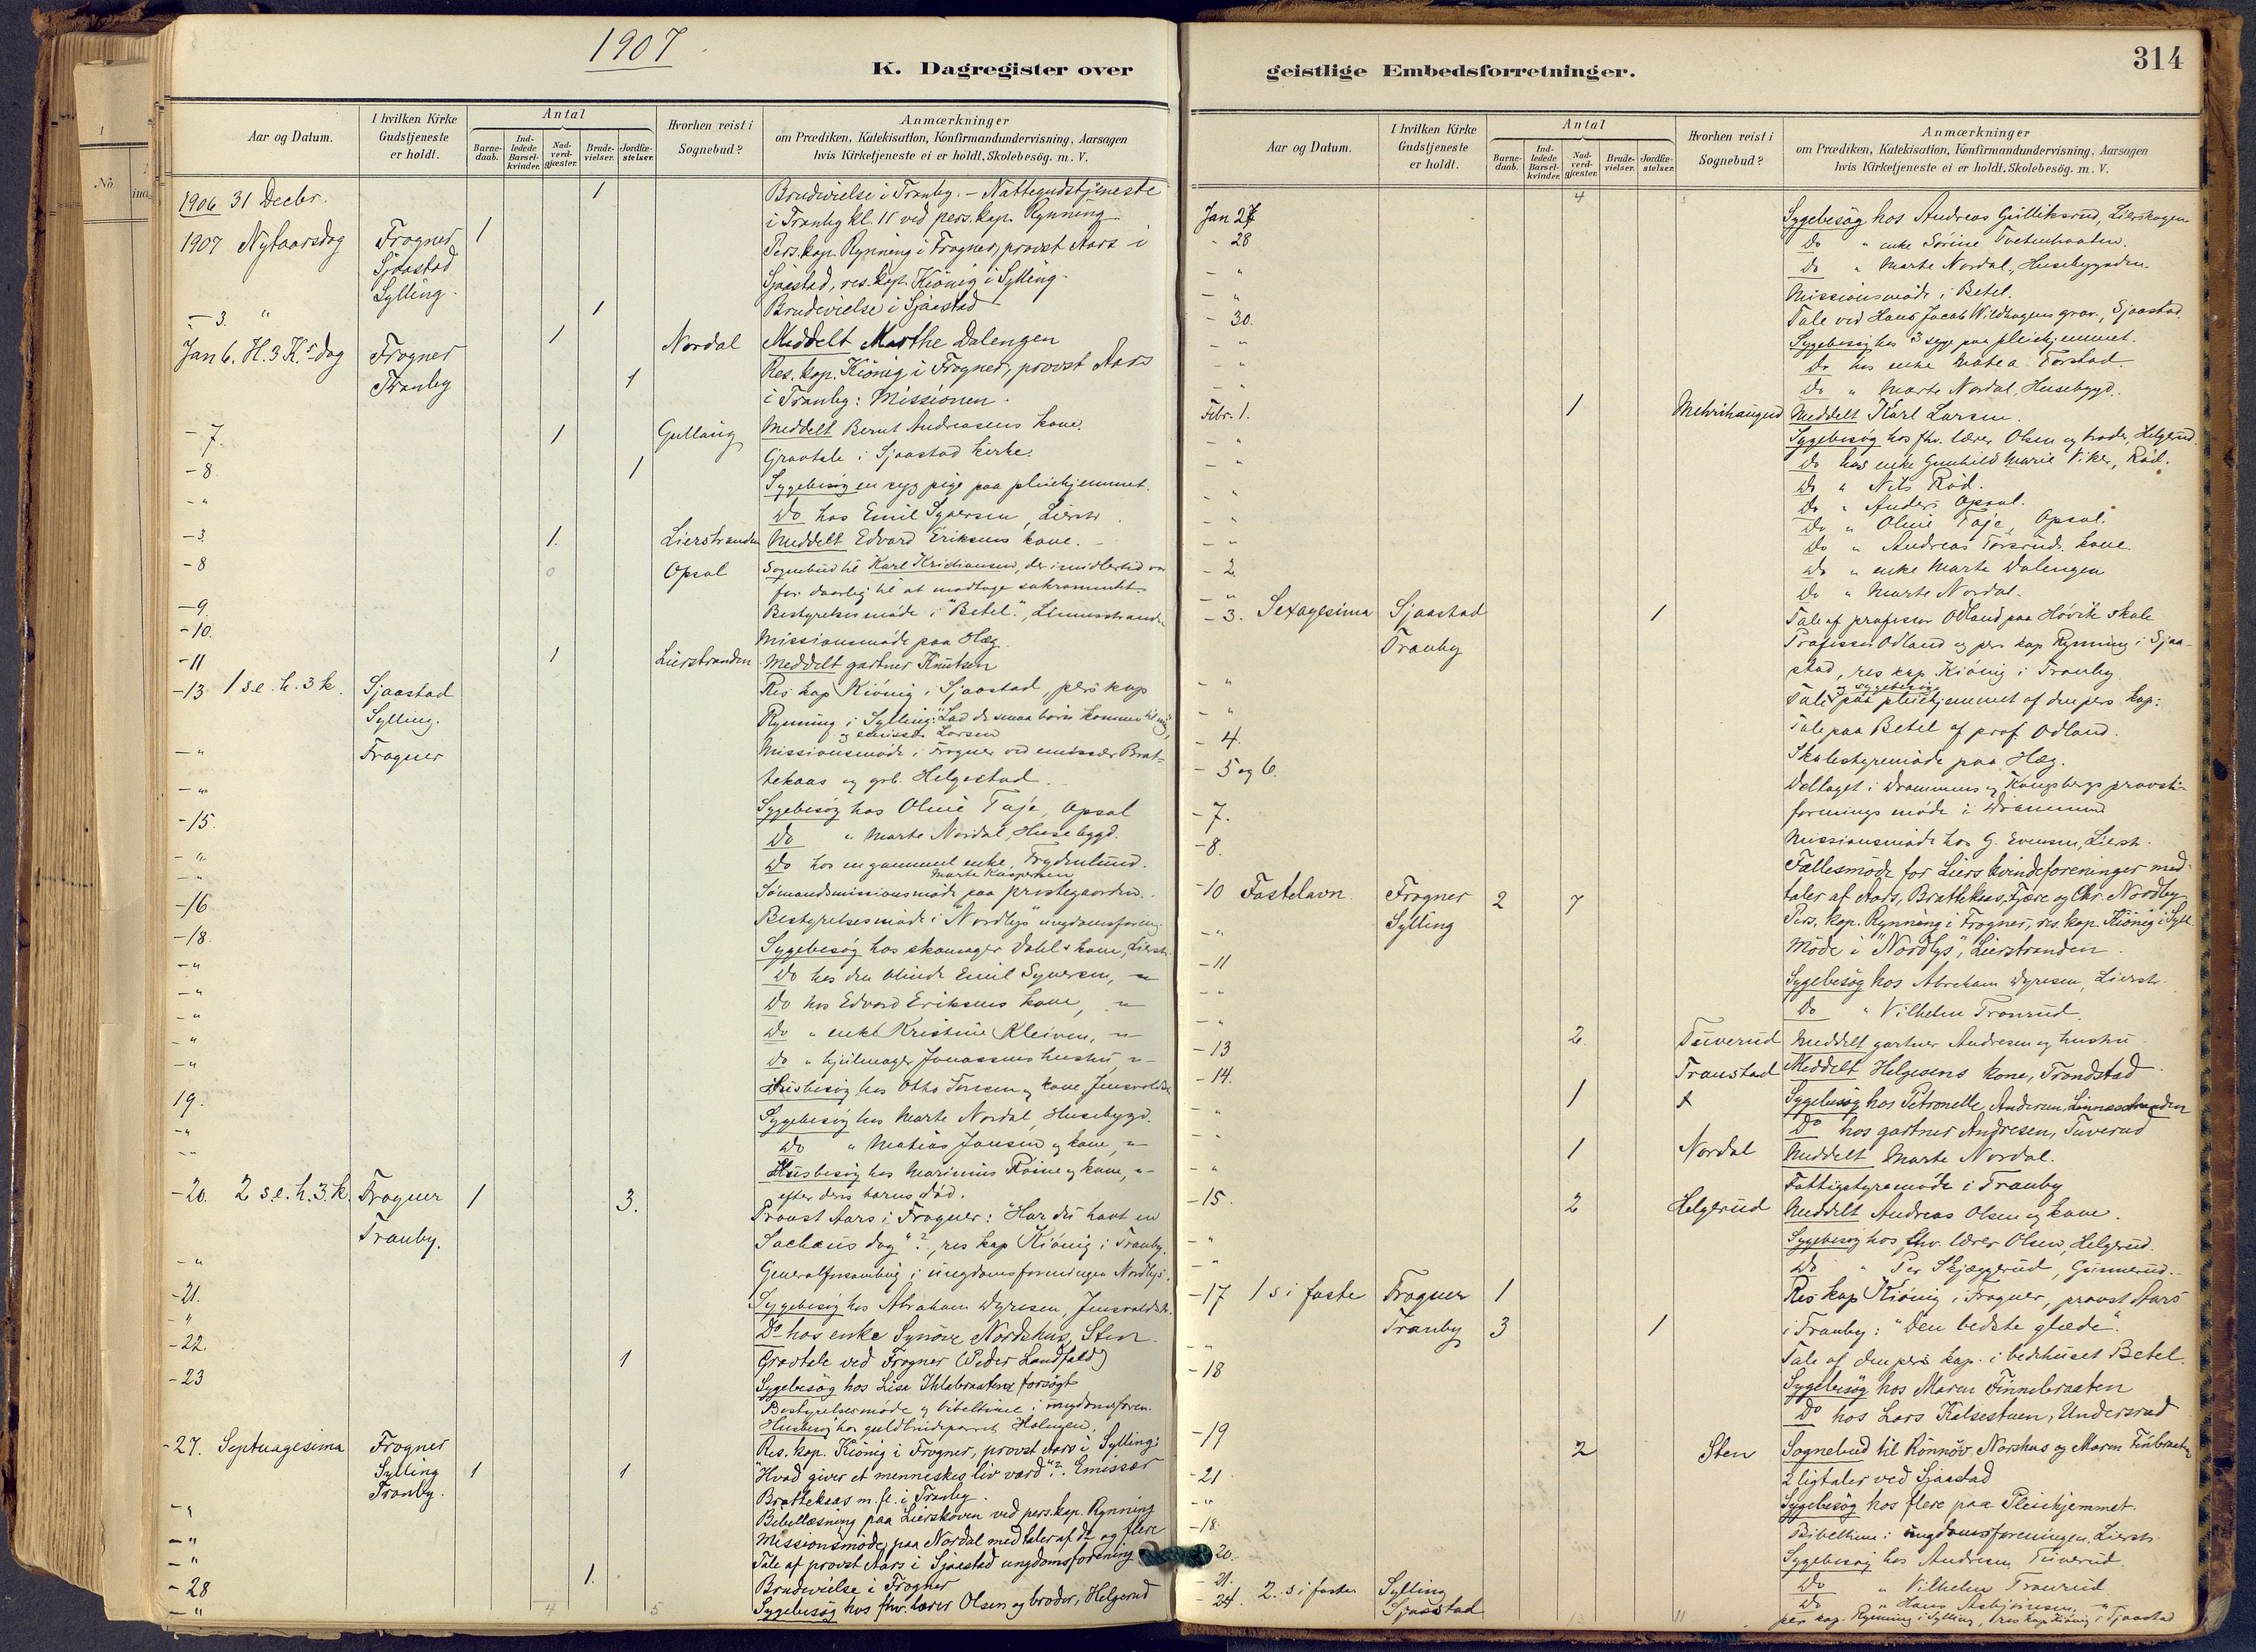 1907
K. Dagregister over
Aar og Datum.
I hvilken Kirke Gudstjeneste er holdt.
Antal
Barne-daab.
Ind-ledede Barsel-kvinder.
Nad-verd-gjester.
Brude-vielser.
Jordfæ-stelser.
Hvorhen reist i Sognebud?
Anmærkninger
om Prædiken, Katekisation, Konfirmandundervisning, Aarsagen
hvis Kirketjeneste ei er holdt, Skolebesög. m. V.
1906 31 Decbr. 1 Brudevielse i Tranby. - Nattegudstjeneste
i Tranby kl. 11 ved pers. kap. Rynning
1907 Nytaarsdag Frogner 1 Pers. kap. Rynning i Frogner, provst Aars i
Sjaastad Sjaastad, res. kap. Kiönig i Sylling.
Sylling.
- 3. " 1 Brudevielse i Sjaastad
1 Nordal Meddelt Marthe Dalengen
Jan 6. H. 3 K.s dag Frogner Res. kap. Kiönig i Frogner, provst Aars
Tranby 1 i Tranby: Missionen.
- 7. 1 Gullaug Meddelt Bernt Andreasens kone.
- 8. 1 Gravtale i Sjaastad kirke.
- " Sygebesög en syg pige paa pleiehjemmet.
Do hos Emil Syversen, Lierstr.
- 3. 1. Lierstranden Meddelt Edvard Eriksens kone.
- 8 0 Opsal Sognebud til Karl Kristiansen, der imidlertid var
for daarlig til at modtage sakramentet.
- 9. Bestyrelsesmöde i "Betel", Linnesstranden
- 10. Missionsmöde paa Hæg.
- 11 1 Lierstranden Meddelt gartner Knutsen
- 13. 1 s. e. h. 3 k. Sjaastad Res. kap Kiönig i Sjaastad, pers kap
Sylling. Rynning i Sylling: "Lad de smaa börn komme til mig",
og emissær Larsen
- " Frogner Missionsmöde i Frogner ved emissær Brat-
tekaas og grb. Helgestad.
- " Sygebesög hos Oline Taje, Opsal
- 15. Do " Marte Nordal, Husebygd.
- " Do hos en gammel enke, Frydenlund.
Marte Kaspersen
- " Sömandsmissionsmöde paa prestegaarden.
- 16 Bestyrelsesmöde i "Nordlys" ungdomsforeng.
- 18. Sygebesög hos skomager Dahls kone, Lierstr.
- " Do hos den blinde Emil Syversen, "
- " Do hos Edvard Eriksens kone, "
- " Do " enke Kristine Kleiven, "
- " Do " hjulmager Jonassens hustru "
- " Husbesög hos Otto Jensen og kone,
19. Sygebesög hos Marte Nordal, Husebygd.
- " Do " Matias Jansen og kone "
- " Husbesög hos Marinius Röine og kone, "
efter deres barns död.
- 20. 2 s. e. h. 3. k. Frogner 1 3. Provst Aars i Frogner: "Har du havt en
Tranby. Sachæus dag"?, res kap Kiönig i Tranby.
- " Generalforsamling i ungdomsforeningen Nordlys.
- 21. Sygebesög hos Abraham Dyresen,
- " Do hos enke Synöve Nordshus, Sten.
- 22. 1 Gravtale ved Frogner (Peder Landfald)
- 23 Sygebesög hos Lisa forsögt
Bestyrelsesmöde og bibeltime i ungdomsforen.
Husbesög hos guldbrudeparret Holmgen,
- 27. Septuagesima Frogner Res. kap. Kiönig i Frogner, provst Aars i Sylling:
Sylling 1 1 "Hvad giver et menneskes liv værd"?. Emissær
Tranby. Brattekaas m. fl. i Tranby.
- " Bibellæsning paa Lierskoven ved pers. kap. Rynning
- " Missionsmöde paa Nordal med taler af do og flere
- " Tale af provst Aars i Sjaastad ungdomsforening
- 28 1. Brudevielse i Frogner
- " 4 5 Sygebesög hos fhv. lærer Olsen og broder, Helgerud
314
geistlige Embedsforretninger.
Aar og Datum.
I hvilken Kirke Gudstjeneste er holdt.
Antal
Barne-daab.
Ind-ledede Barsel-kvinder.
Nad-verd-gjester.
Brude-vielser.
Jordfæ-stelser.
Hvorhen reist i Sognebud?
Anmærkninger
om Prædiken, Katekisation, Konfirmandundervisning, Aarsagen
hvis Kirketjeneste ei er holdt, Skolebesög. m. V.
4 5
Jan 28 Sygebesög hos Andreas Gulliksrud, Lierskogen
- 28 Do " enke Sörine Tvetenbraaten.
- " Do " Marte Nordal, Husebygden.
- " Missionsmöde i Betel.
- 30. Tale ved Hans Jacob Wildhagens grav, Sjaastad.
- " Sygebesög hos 3 syge paa pleiehjemmet.
- " Do hos enke Matea Torstad.
- " Do " Marte Nordal, Husebygd.
Febr. 1. 1 Meddelt Karl Larsen.
- " Sygebesög hos fhv. lærer Olsen og broder, Helgerud.
- " Do hos enke Gunhild Marie Viker, Röd.
- " Do " Nils Röd.
Do " Anders Opsal.
- " Do " Oline Taje, Opsal.
- " Do " Andreas Torsruds kone.
- 2. Do " enke Marte Dalengen
- " Do " Marte Nordal.
- 3. Sexagesima Sjaastad 1 Tale af professor Odland paa Hövik skole
Tranby Professor Odland og pers kap Rynning i Sjaa-
stad, res kap Kiönig i Tranby.
og sygebesög
- " Tale paa pleiehjemmet af den pers kap:
- " Tale paa Betel af prof. Odland.
- 4. Skolestyremöde paa Hæg.
- 5 og 6. Deltaget i Drammens og Kongsbergs provsti-
forenings möde i Drammen
- 7. Missionsmöde hos G. Evensen, Lierstr.
- 8. Fællesmöde for Liers kvindeforeninger med
taler af Aars, Brattekaas, Fjære og Chr. Nordby
- 10 Fastelavn. Frogner 2 7 Pers. kap. Rynning i Frogner, res. kap. Kiönig i Syll.
Sylling
- " Möde i "Nordlys", Lierstranden.
- 11 Sygebesög hos Abraham Dyresen, Lierstr.
- " Do " Vilhelm Tronrud.
- 13 2. Tuverud Meddelt gartner Andresen og hustru.
- 14. 1 Transtad Meddelt Helgesens kone, Trondstad.
- " x Sygebesög hos Petronelle Andersen, Linnesstranden
- " Do hos gartner Andresen, Tuverud
- " 1 Nordal Meddelt Marte Nordal.
Fattigstyremöde i Tranby
- 15. 2 Helgerud Meddelt Andreas Olsen og kone.
- " Sygebesög hos fhv. lærer Olsen, Helgerud.
- " Do " Per Skjæggerud, Gunnerud.
- 17 1 s i faste Frogner 1 Res kap Kiönig i Frogner, provst Aars
Tranby 3 1 i Tranby: "Den bedste glæde".
- " Tale af den pers kap. i bedehuset Betel.
- 18 Sygebesög hos Maren Finnebraaten
Do hos Lars Kalsestuen, Undersrud
- 19 2 Sten Sognebud til Rönnöv Norshus og Maren Finbraaten
- 21 2 ligtaler ved Sjaastad
- " Sygebesög hos flere paa Pleiehjemmet.
- 18. Bibeltime i ungdomsforeningen, Lierstr.
- 20. Sygebesög hos Andresen Tuverud.
- 21. Do " Vilhelm Tronrud
- 24. 2. s i fasten Sylling Do " Hans Asbjörnsen, "
Sjaastad 13 11 pers kap. Rynning i Sylling, res kap Kiönig i Sjaastad